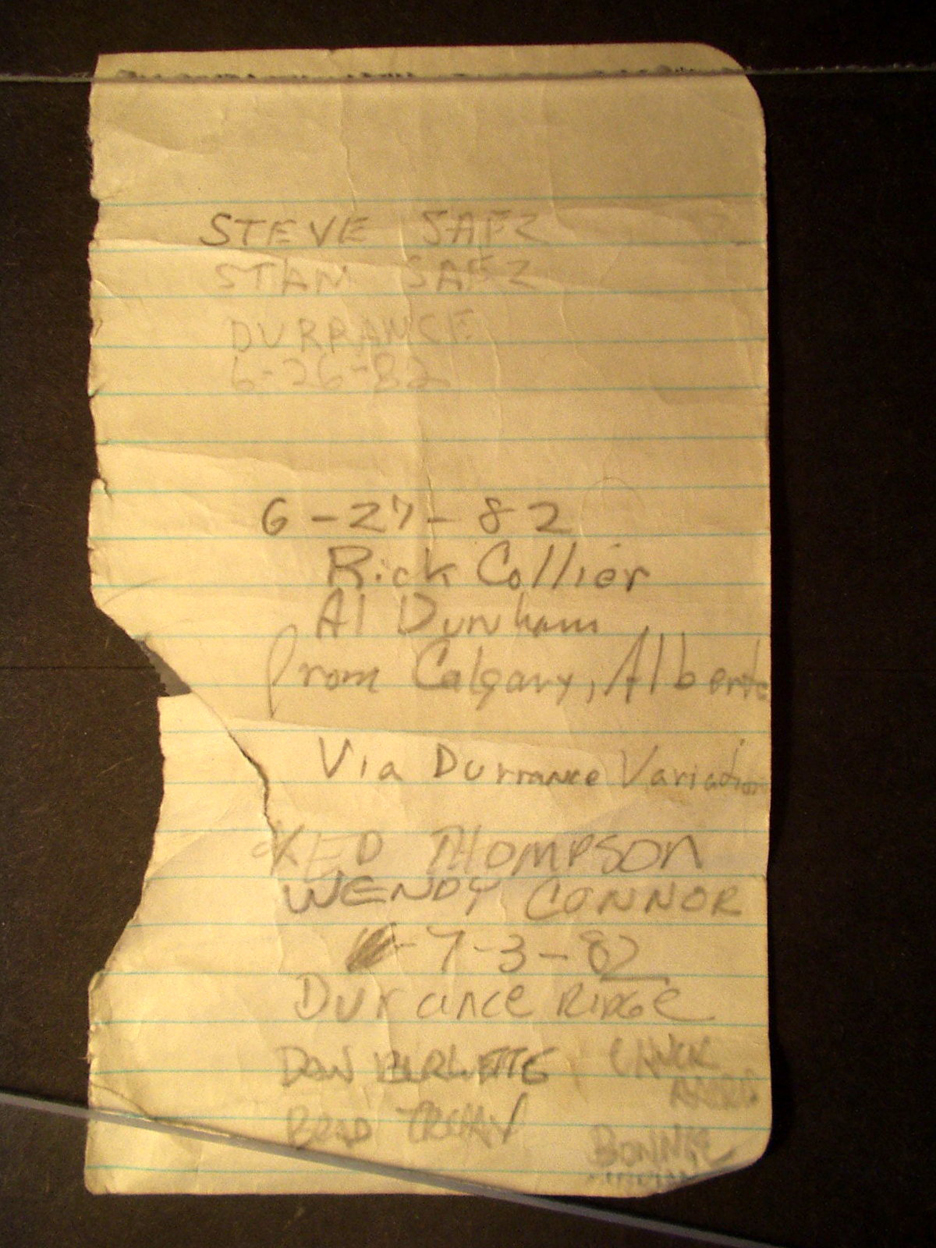 STEVE SAFZ
STAN SAFZ
DURRANCE
6-26-82
6-27-82
Rick Collier
Al Dunham
from Calgary, Alberta
Via Durrance Variation
KED THOMPSON
WENDY CONNOR
-7-3-82
Durance RIDGE
DON CHUCK
BRAD
BONNIE